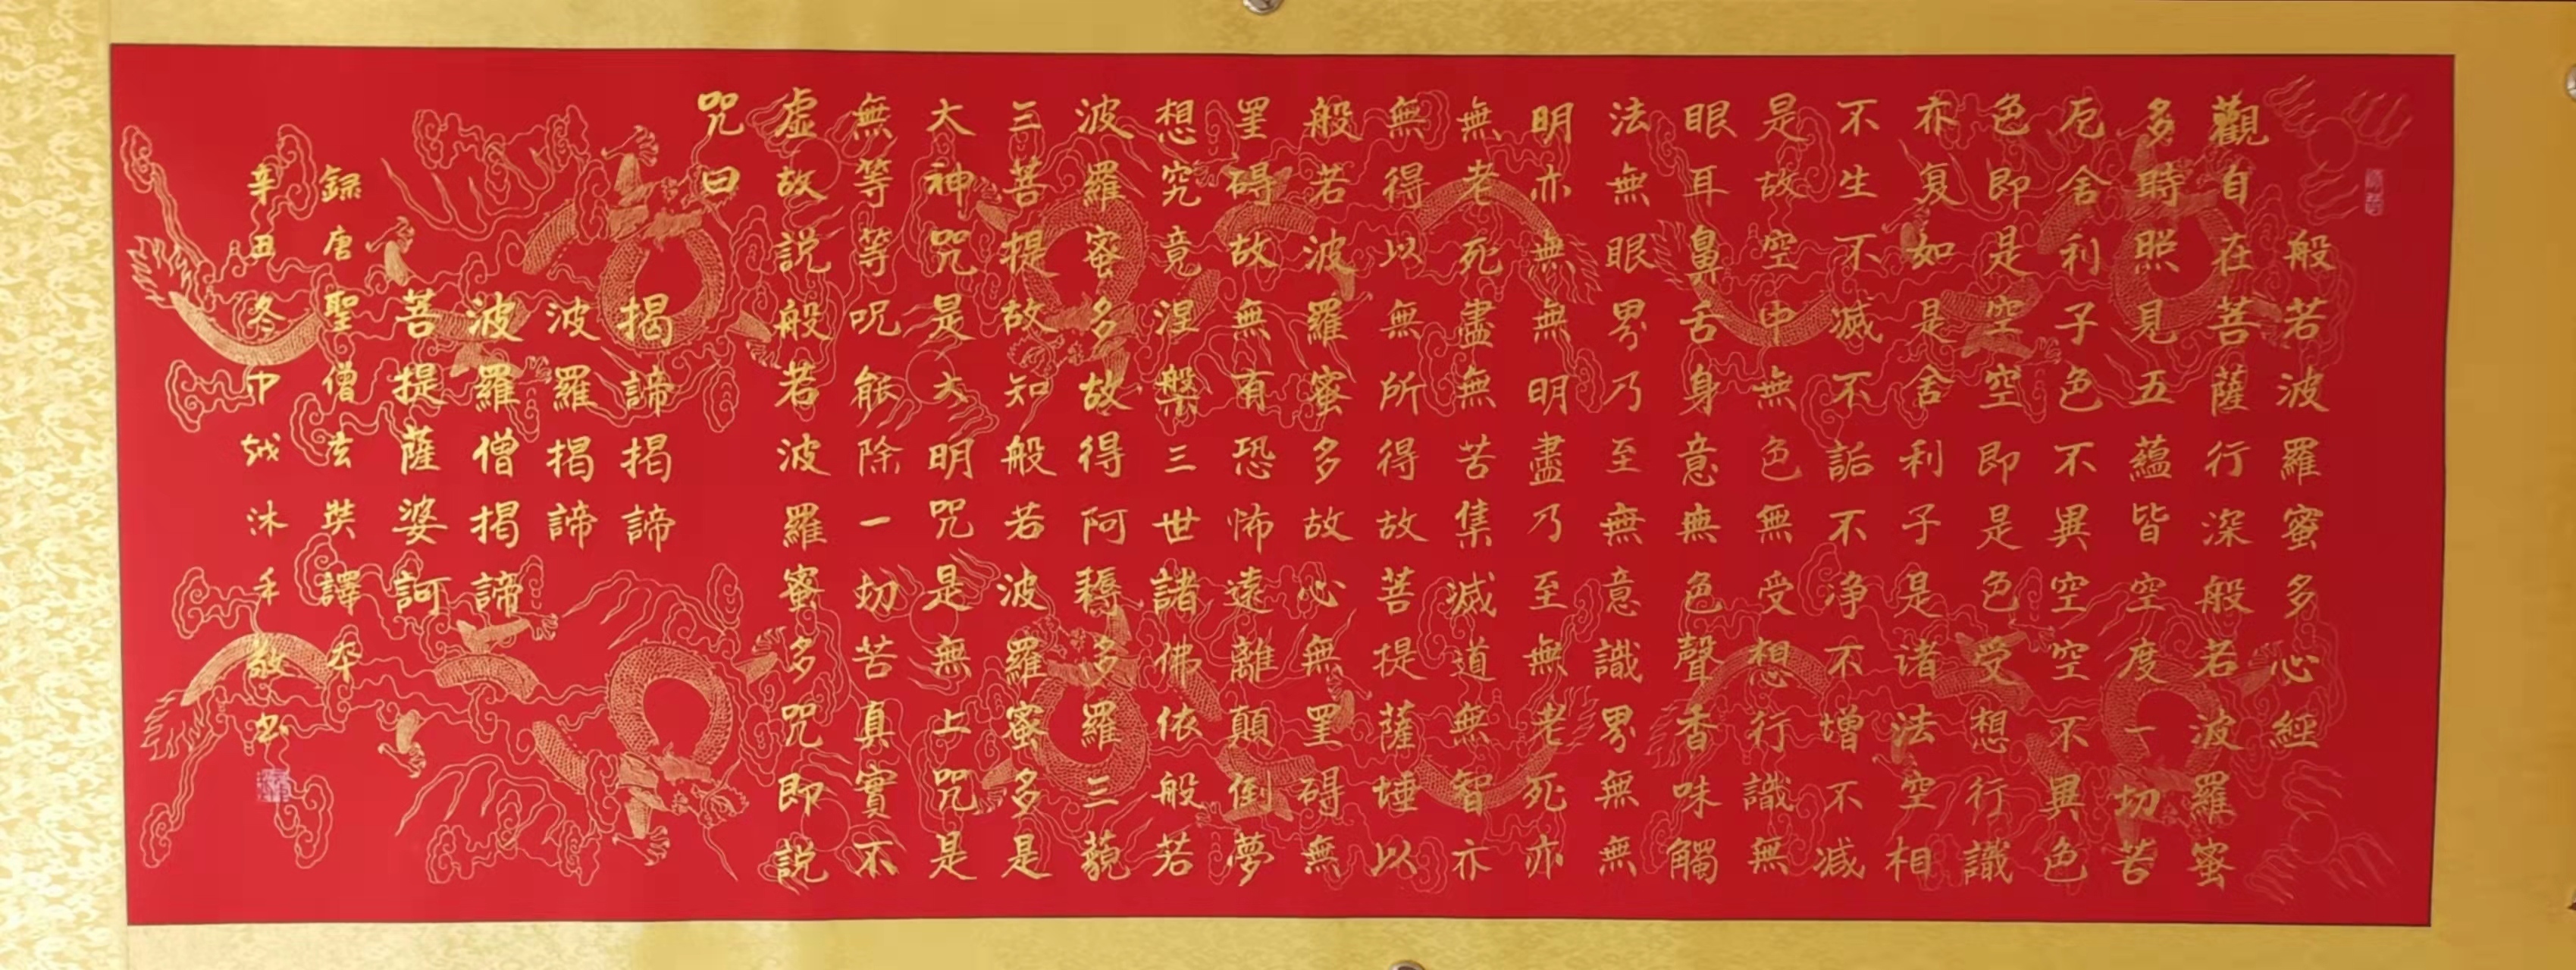 般若波羅蜜多心經
觀自在菩薩行深般若波羅蜜
多時照見五蘊皆空度一切苦
厄舍利子色不異空空不異色
色即是空空即是色受想行識
亦复如是舍利子是诸法空相
不生不滅不詬不净不增不减
是故空中無色無受想行識無
眼耳鼻舌身意無色聲香味觸
法無眼界乃至無意識界無無
明亦無無明盡乃至無老死亦
無老死盡無苦集滅道無智亦
無得以無所得故菩提薩埵以
般若波羅蜜多故心無罣碍無
罣碍故無有恐怖遠離顛倒夢
想究竟涅槃三世諸佛依般若
波羅蜜多故得阿耨多羅三藐
三菩提故知般若波羅蜜多是
大神咒是大明咒是無上咒是
無等等呪能除一切苦真實不
虛故説般若波羅蜜多咒即説
咒曰
揭諦揭諦
波羅揭諦
波羅僧揭諦
菩提薩婆訶
録唐聖僧玄奘譯本
辛丑冬巾沐手敬书